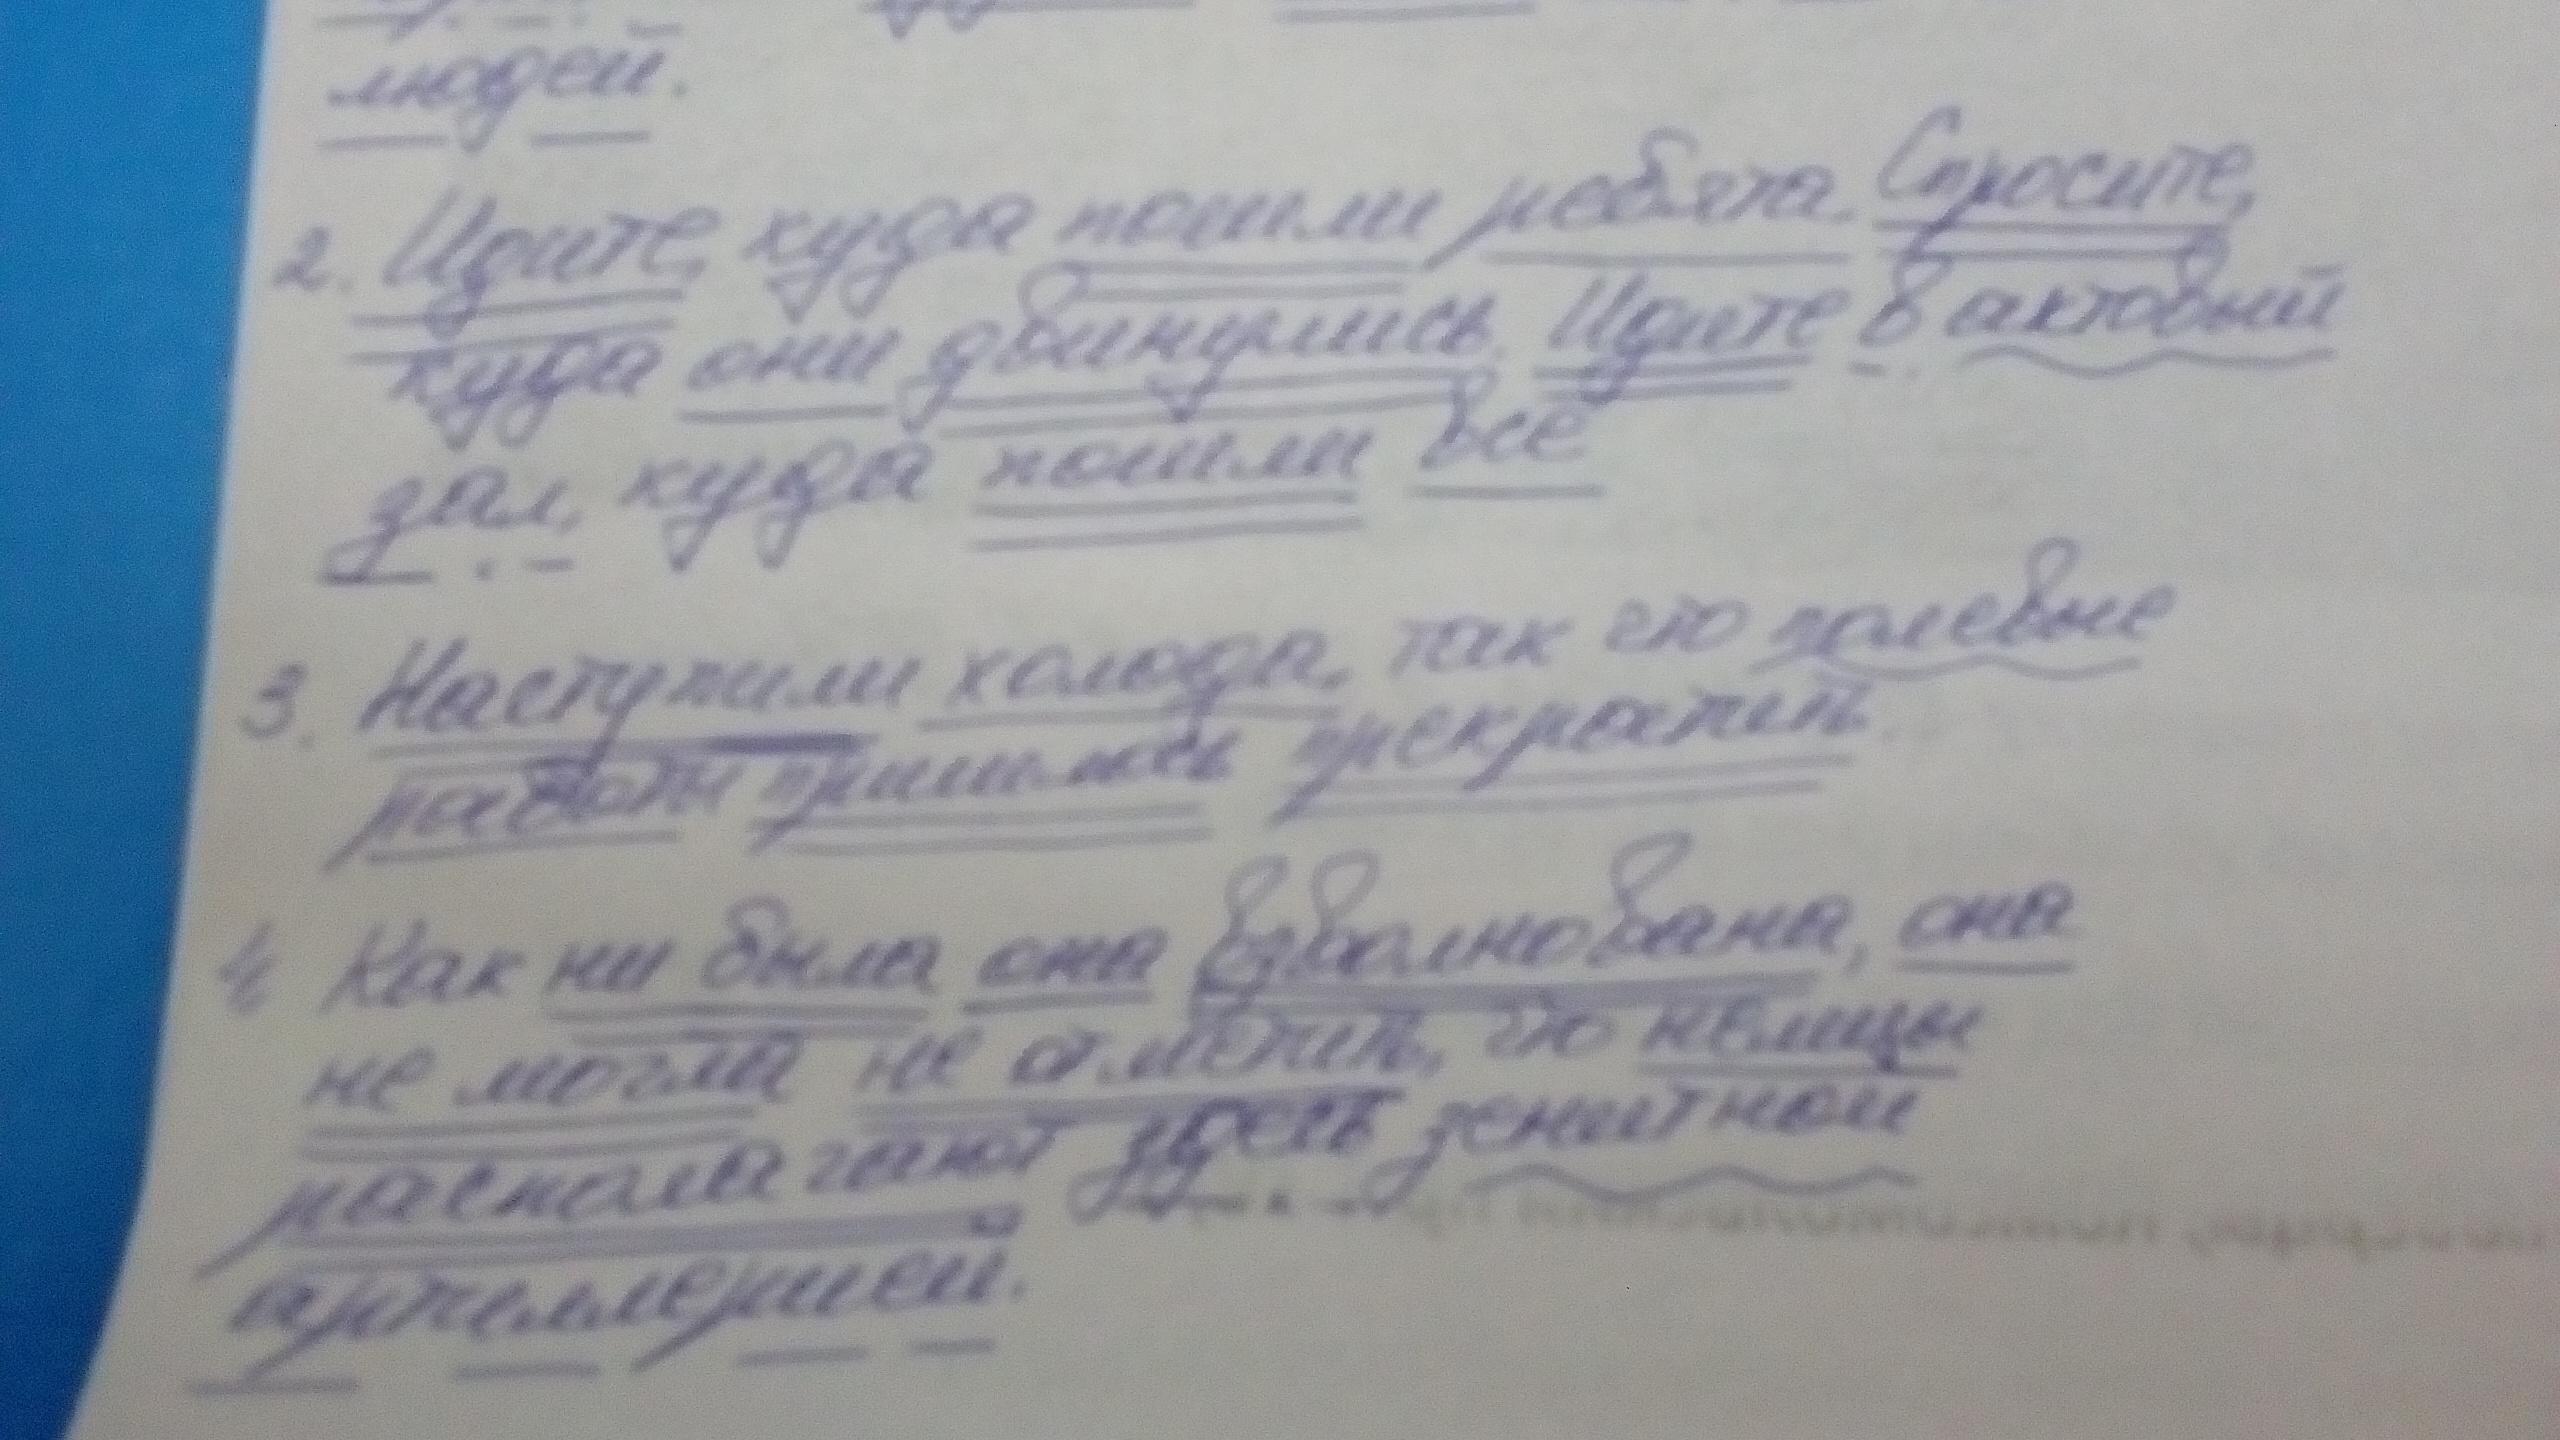 людей.
2. Идите, куда пошли ребята. Спросите,
куда они двинулись. Идите в актовый
зал, куда пошли все
3. Наступили холода, так что полевые
работы пришлось прекратить.
4 Как ни была она взволнована, она
не могла не отметить, что немцы
располагают здесь зенитной
артиллерией.